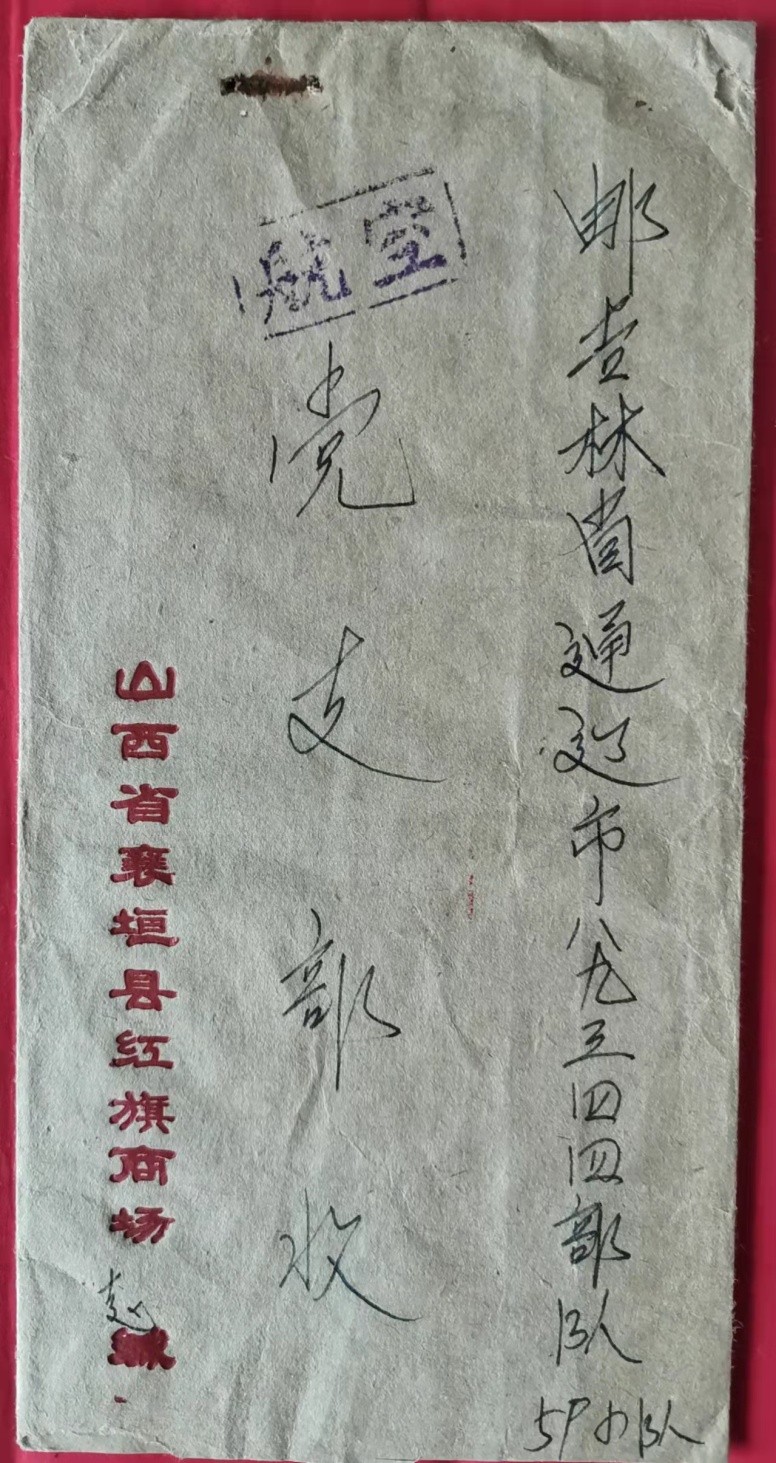 邮吉林省通辽市八九三四四部队
队
航空
党支部收
山西省襄垣县红旗商场
赵缄